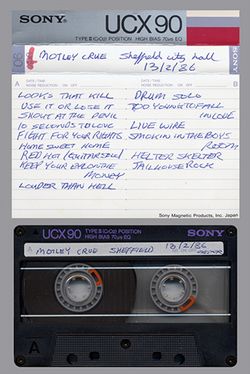 SONY
UCX 90
TYPE II (CrO₂) POSITION HIGH BIAS 70μs EQ
MOTLEY CRUE Sheffield city hall
13/2/86
A DATE/TIME
NOISE REDUCTION ON OFF
B DATE/TIME
NOISE REDUCTION ON OFF
LOOKS THAT KILL
USE IT OR LOSE IT
SHOUT AT THE DEVIL
10 SECONDS TO LOVE
FIGHT FOR YOUR RIGHTS
HOME SWEET HOME
RED HOT (GUITAR SOLO)
KEEP YOUR EYE ON THE
MONEY
LOUDER THAN HELL
DRUM SOLO
TOO YOUNG TO FALL
IN LOVE
LIVE WIRE
SMOKIN IN THE BOYS
ROOM
HELTER SKELTER
JAILHOUSE ROCK
Sony Magnetic Products, Inc. Japan
UCX 90 TYPE II (CrO₂) POSITION HIGH BIAS 70μs EQ SONY
A MOTLEY CRUE SHEFFIELD 13/2/86
A